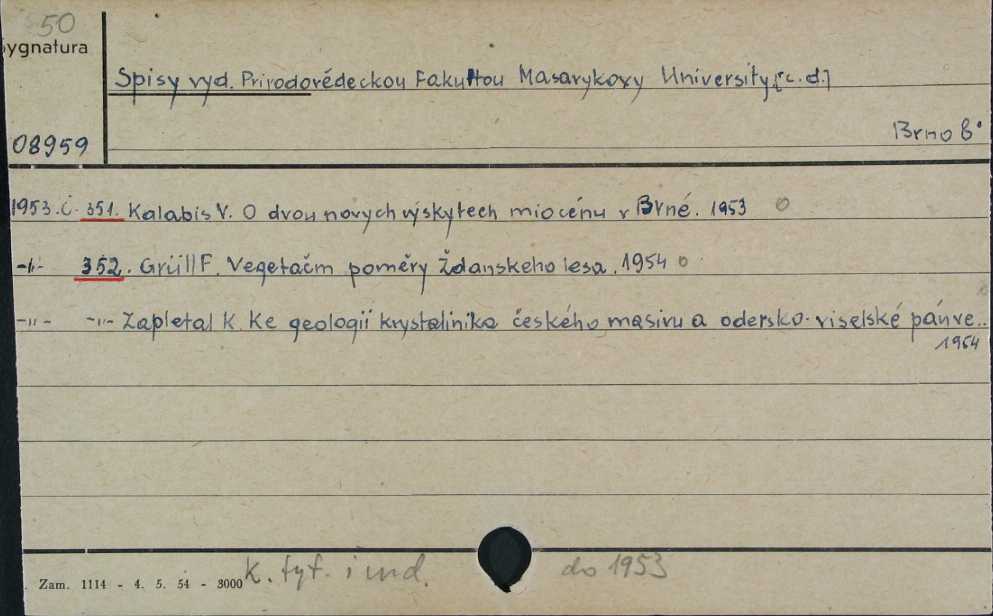 50
Sygnatura
Spisy vyd. Prirodovědeckou Fakultou Masarykovy University [c.d.]
08959
Brno 6
1953. č. 351. Kalabis V. O dvou nových výskytech miocénu v Brně. 1953 O
-"- 352. Grüll F. Vegetačm poměry Ždanskeho lesa. 1954 o
-"- -"- Zapletal K. Ke geologii krystalinika českého masivu a odersko-viselské pánve..
1954
Zam. 1114 - 4. 5. 54 - 3000 k. tyt. i ind. do 1953